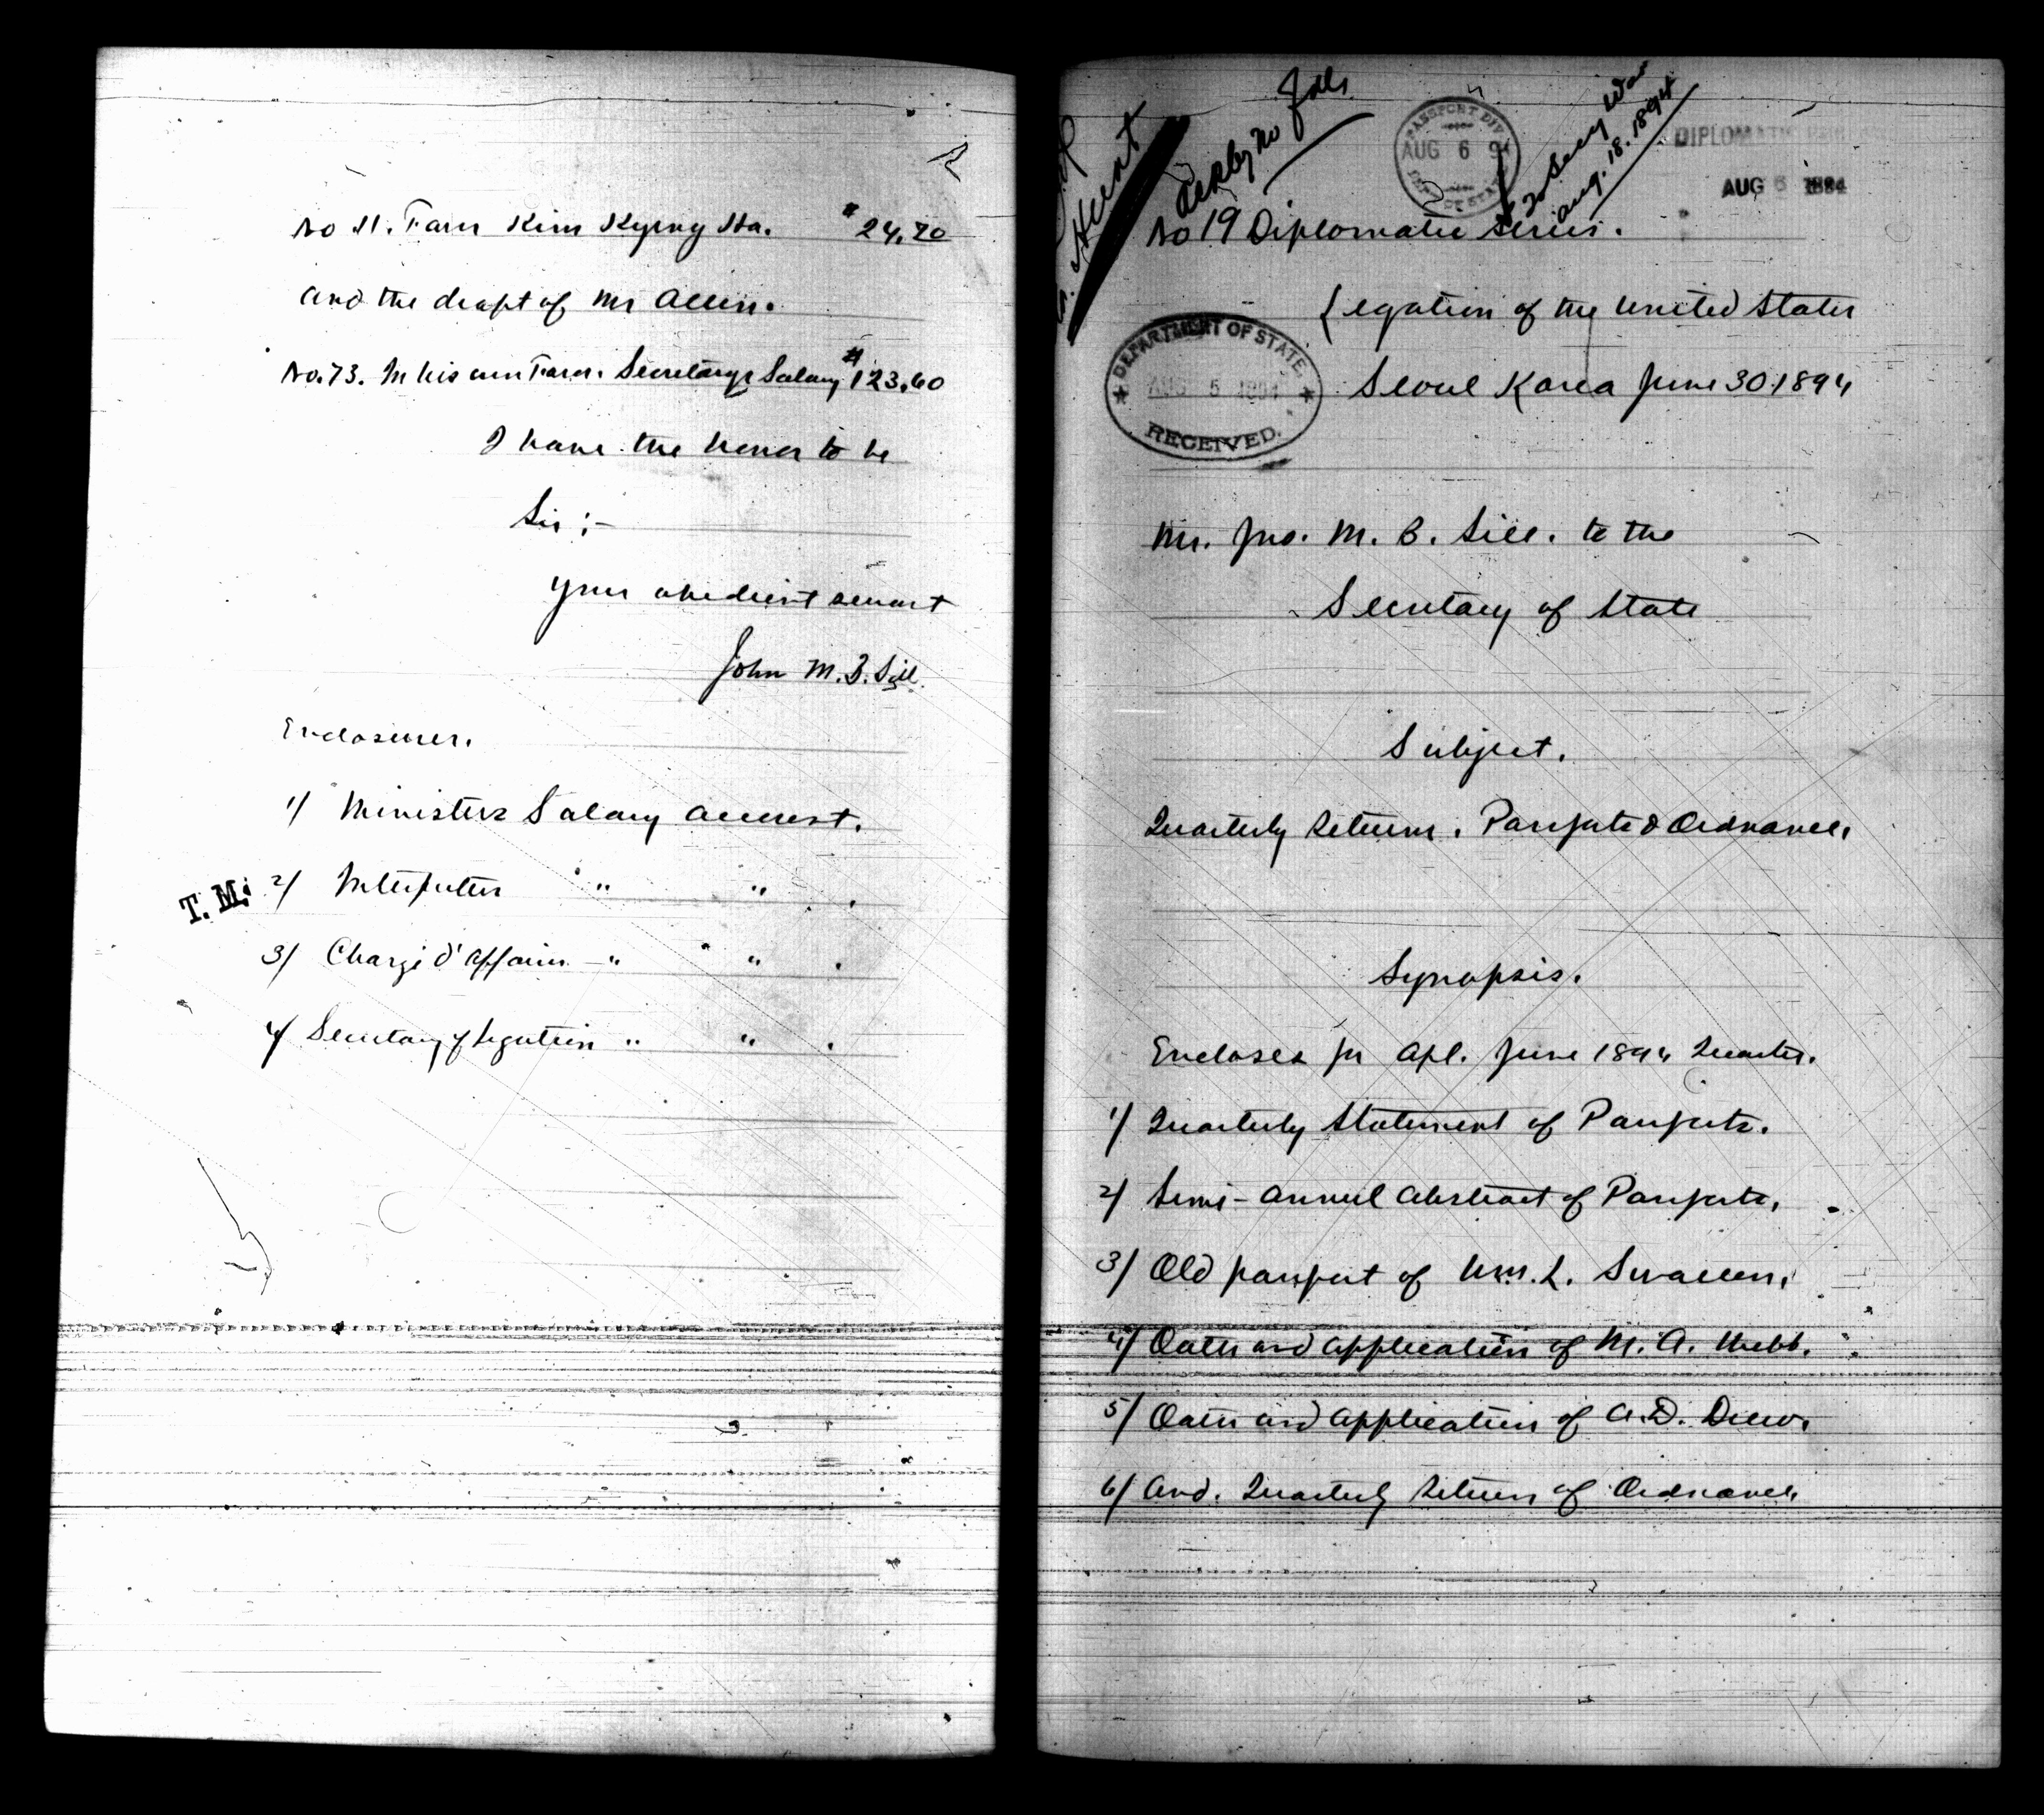 No 11. Favor Kim Kyeng Ha. $24.70
and the draft of Mr Allen.
No. 73. In his own Favor. Secretarys Salary $123.60
I have the honor to be
Sir :-
Your obedient servant
John M. B. Sill.
Enclosures.
1/ Ministers Salary Account.
T. M.
2/ Interpreters " " .
3/ Chargé d'Affaires " " .
4/ Secretary of Legation " " .
Hunt
PASSPORT DIV.
AUG 6 94
DEPT OF STATE
Secy War
Aug. 18. 1894
DIPLOMATIC
AUG 6 1894
No 19 Diplomatic Series.
Legation of the United States
DEPARTMENT OF STATE.
AUG 5 1894
RECEIVED.
Seoul Korea June 30 1894
Mr. Jno. M. B. Sill. to the
Secretary of State
Subject.
Quarterly Returns. Passports & Ordnance.
Synopsis.
Encloses for Apl. June 1894 Quarter.
1/ Quarterly Statement of Passports.
2/ Semi-annul Abstract of Passports.
3/ Old passport of Wm. L. Swallen.
4/ Oath and application of M. A. Webb.
5/ Oath and application of A. D. Drew.
6/ And. Quarterly Return of Ordnance.